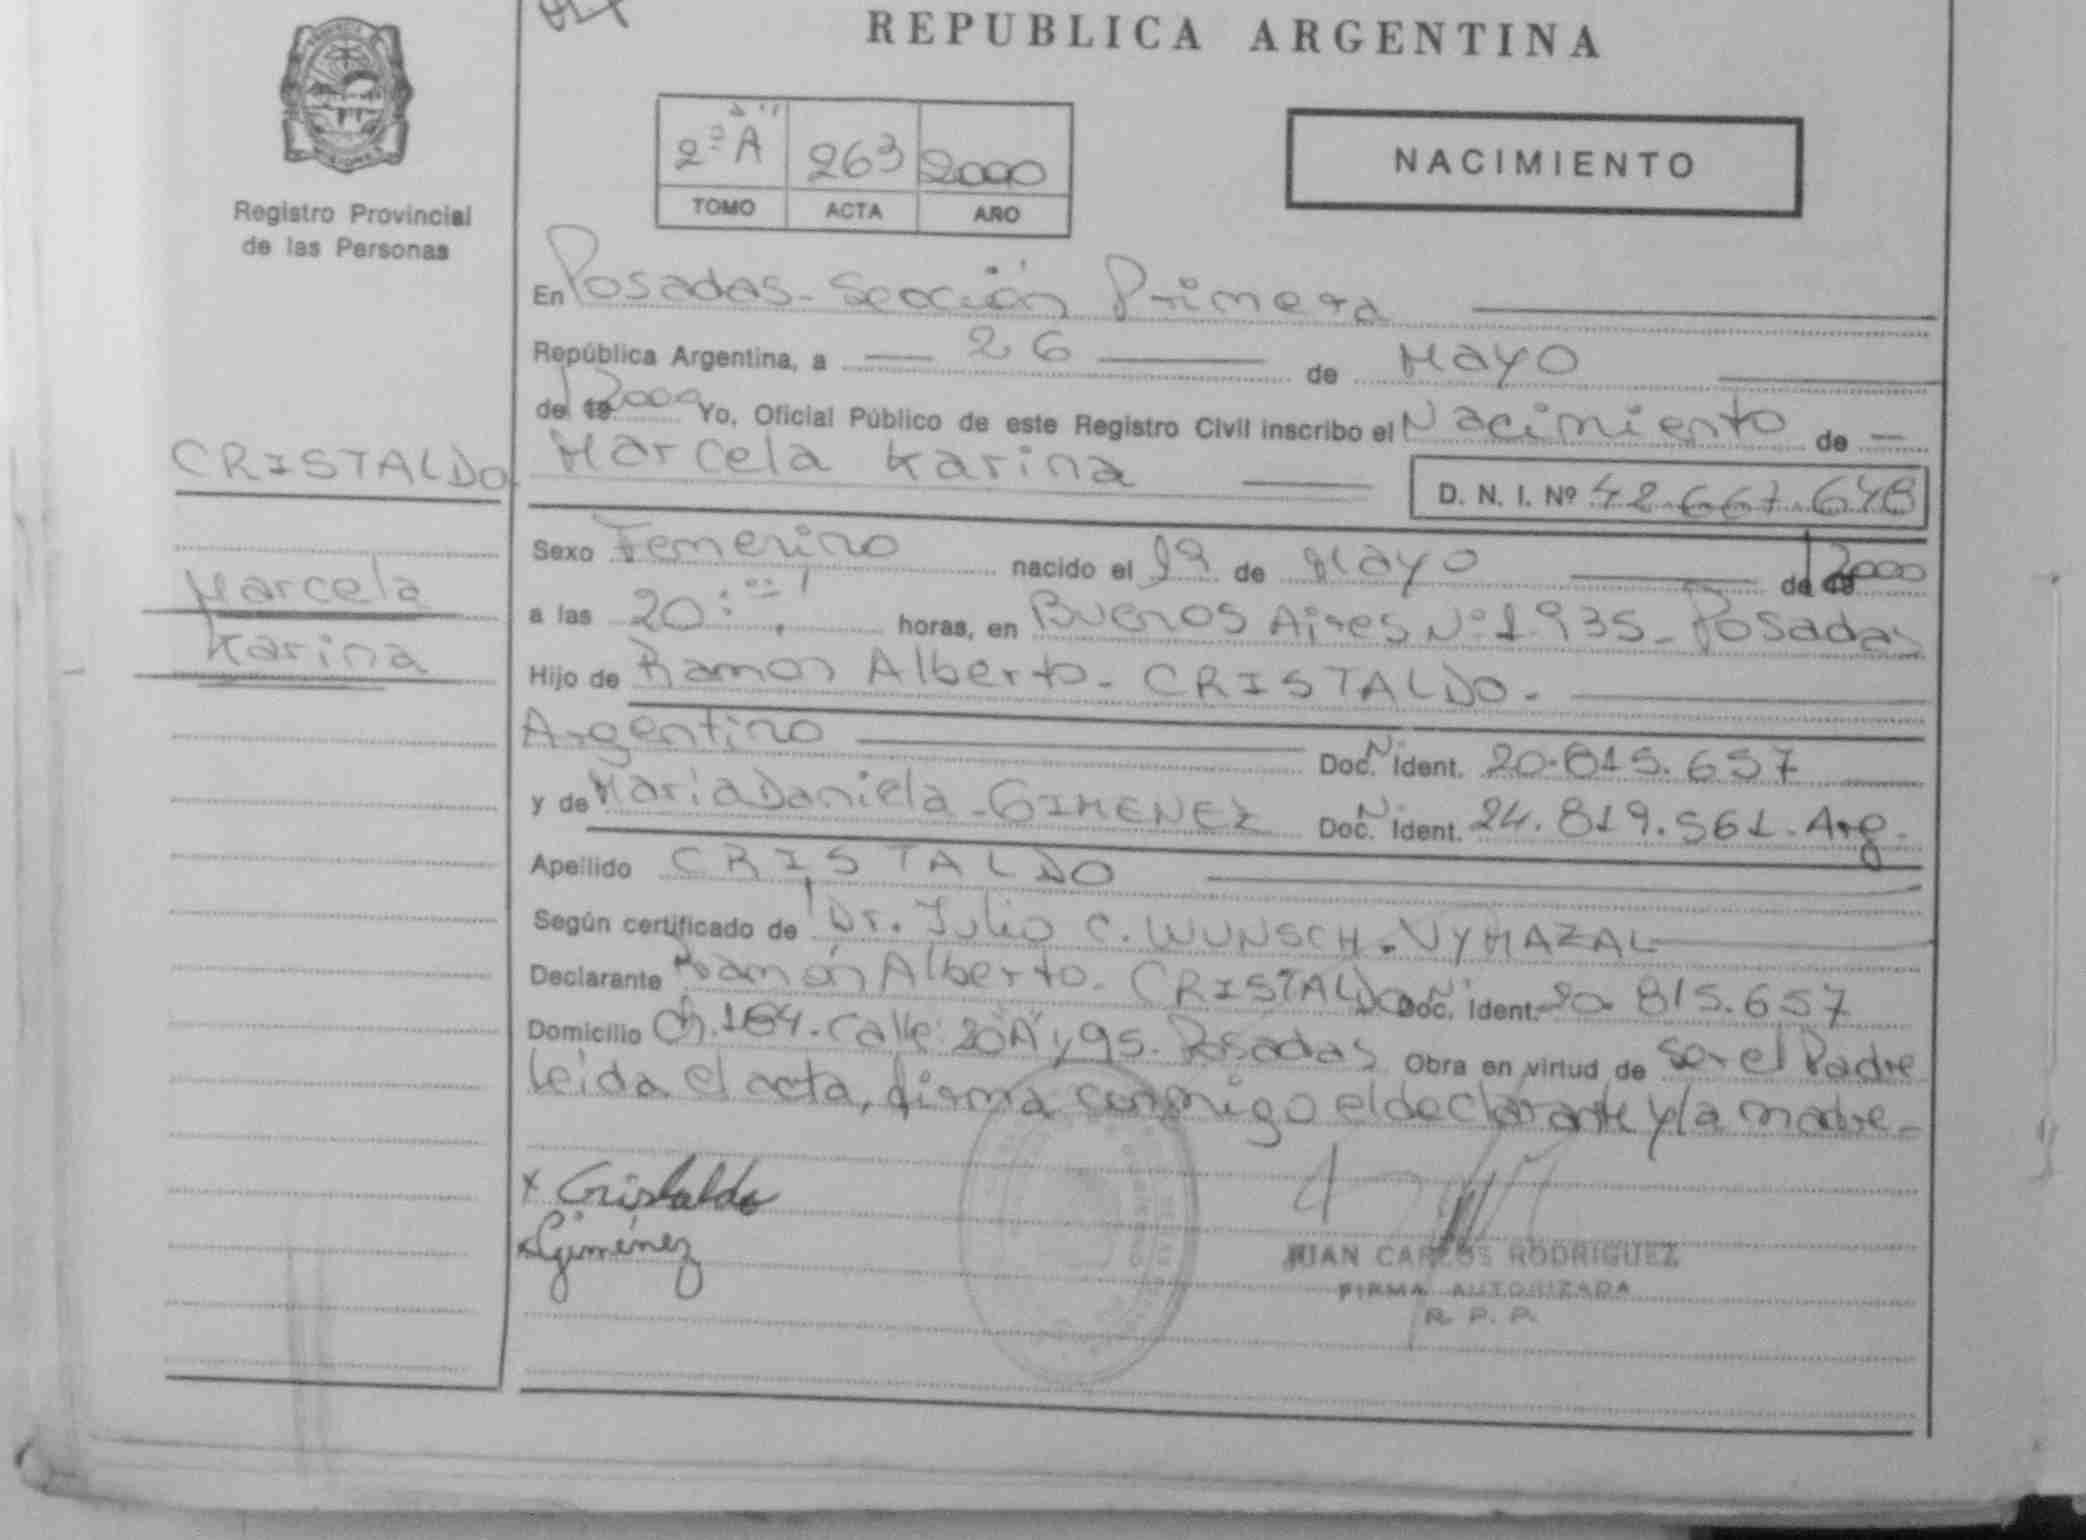 REPUBLICA ARGENTINA
Registro Provincial
de las Personas
2º A 263 2000
TOMO ACTA AÑO
NACIMIENTO
En Posadas - Sección Primera
República Argentina, a 26 de Mayo
de 19 2000 Yo, Oficial Público de este Registro Civil inscribo el Nacimiento de —
CRISTALDO Marcela Karina
D. N. I. Nº 42.667.648
Marcela
Karina
Sexo Femenino nacido el 19 de Mayo de 19 2000
a las 20: horas, en Buenos Aires Nº 1.935 - Posadas
Hijo de Ramon Alberto - CRISTALDO -
Argentino Doc. N. Ident. 20.815.657
y de Maria Daniela - GIMENEZ Doc. N. Ident. 24.819.561 - Arg.
Apellido CRISTALDO
Según certificado de Dr. Julio C. WUNSCH - VYHAZAL
Declarante Ramón Alberto - CRISTALDO Doc. N. Ident. 20.815.657
Domicilio Ch. 184 - Calle: 20 "A" y 95 - Posadas Obra en virtud de ser el Padre
leida el acta, firma conmigo el declarante y la madre -
x Cristaldo
x Gimenez
JUAN CARLOS RODRIGUEZ
FIRMA AUTORIZADA
R. P. P.